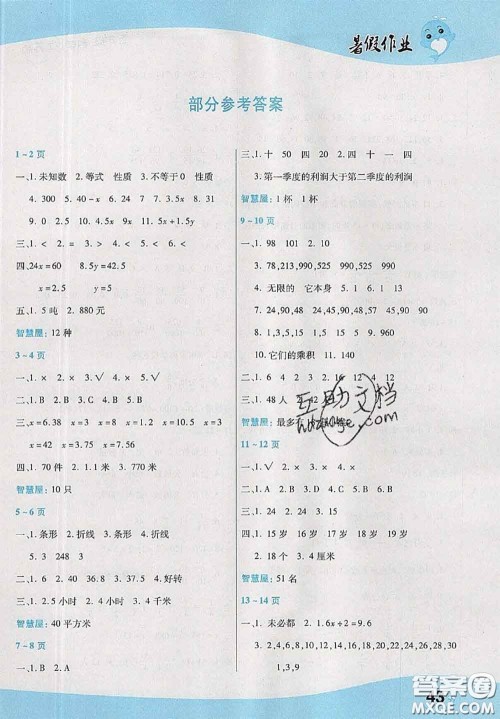 暑假作业
部分参考答案
1~2页
一、1. 未知数 2. 等式 性质 3. 不等于0 性质
4. 200 5. 40-x 6. 24 7. 0.5 8. 2
9. 0.9 10. 2 11. 4.5x 12. 5x+1.5y
三、1. < 2. < 3. > 4. > 5. = 6. <
四、24x=60 8.5y=42.5
x=2.5 y=5
五、1. 5吨 2. 880元
智慧屋: 12种
3~4页
一、1. × 2. × 3. √ 4. × 5. √
二、1. A 2. B 3. A 4. B 5. B
三、x=6.38 x=3 x=8 x=10 x=8.3
x=6 x=6.6 x=0.2 x=4 x=16
四、1. 70厘米 2. 1.1米 3. 270米
智慧屋: 10只
5~6页
一、1. 条形 2. 折线 3. 1. 条形 2. 折线
3. 3 248 3
二、1. 2. 8 3. 4. 8 4. 好转
三、1. 2.5小时 2. 2.5小时 3. 4千米
智慧屋: 40平方米
7~8页
一、1. B 2. B 3. A 4. D
三、1. 十 50 四 20 2. 四 十 一 四
3. 第一季度的利润大于第二季度的利润
智慧屋: 1杯 1杯
9~10页
一、1. 98 101 2. 20 10
3. 78,213,990,525 990,525 990
4. 无限的 它本身 5. 1 6. 1 13
7. 24,90,48,18 9. 24,45,90,48,51,18
10. 它们的乘积 11. 140
二、6 2 4 3 6 12 4
三、1. 48人 2. 42
智慧屋: 最多有
11~12页
一、1. × 2. × 3. √ 4. √ 5. ×
二、1. A 2. B 3. D 4. A 5. B
四、1. 15岁 14岁 16岁 17岁 19岁
2. 18厘米 3. 4厘米
智慧屋: 51名
13~14页
一、1. 未必都 2. 1.6÷2=9.6
3. 2,4,6,7,8,13,14,15,16,17,18,19
1,3,9
互助文档
答案圈
MXQE.COM